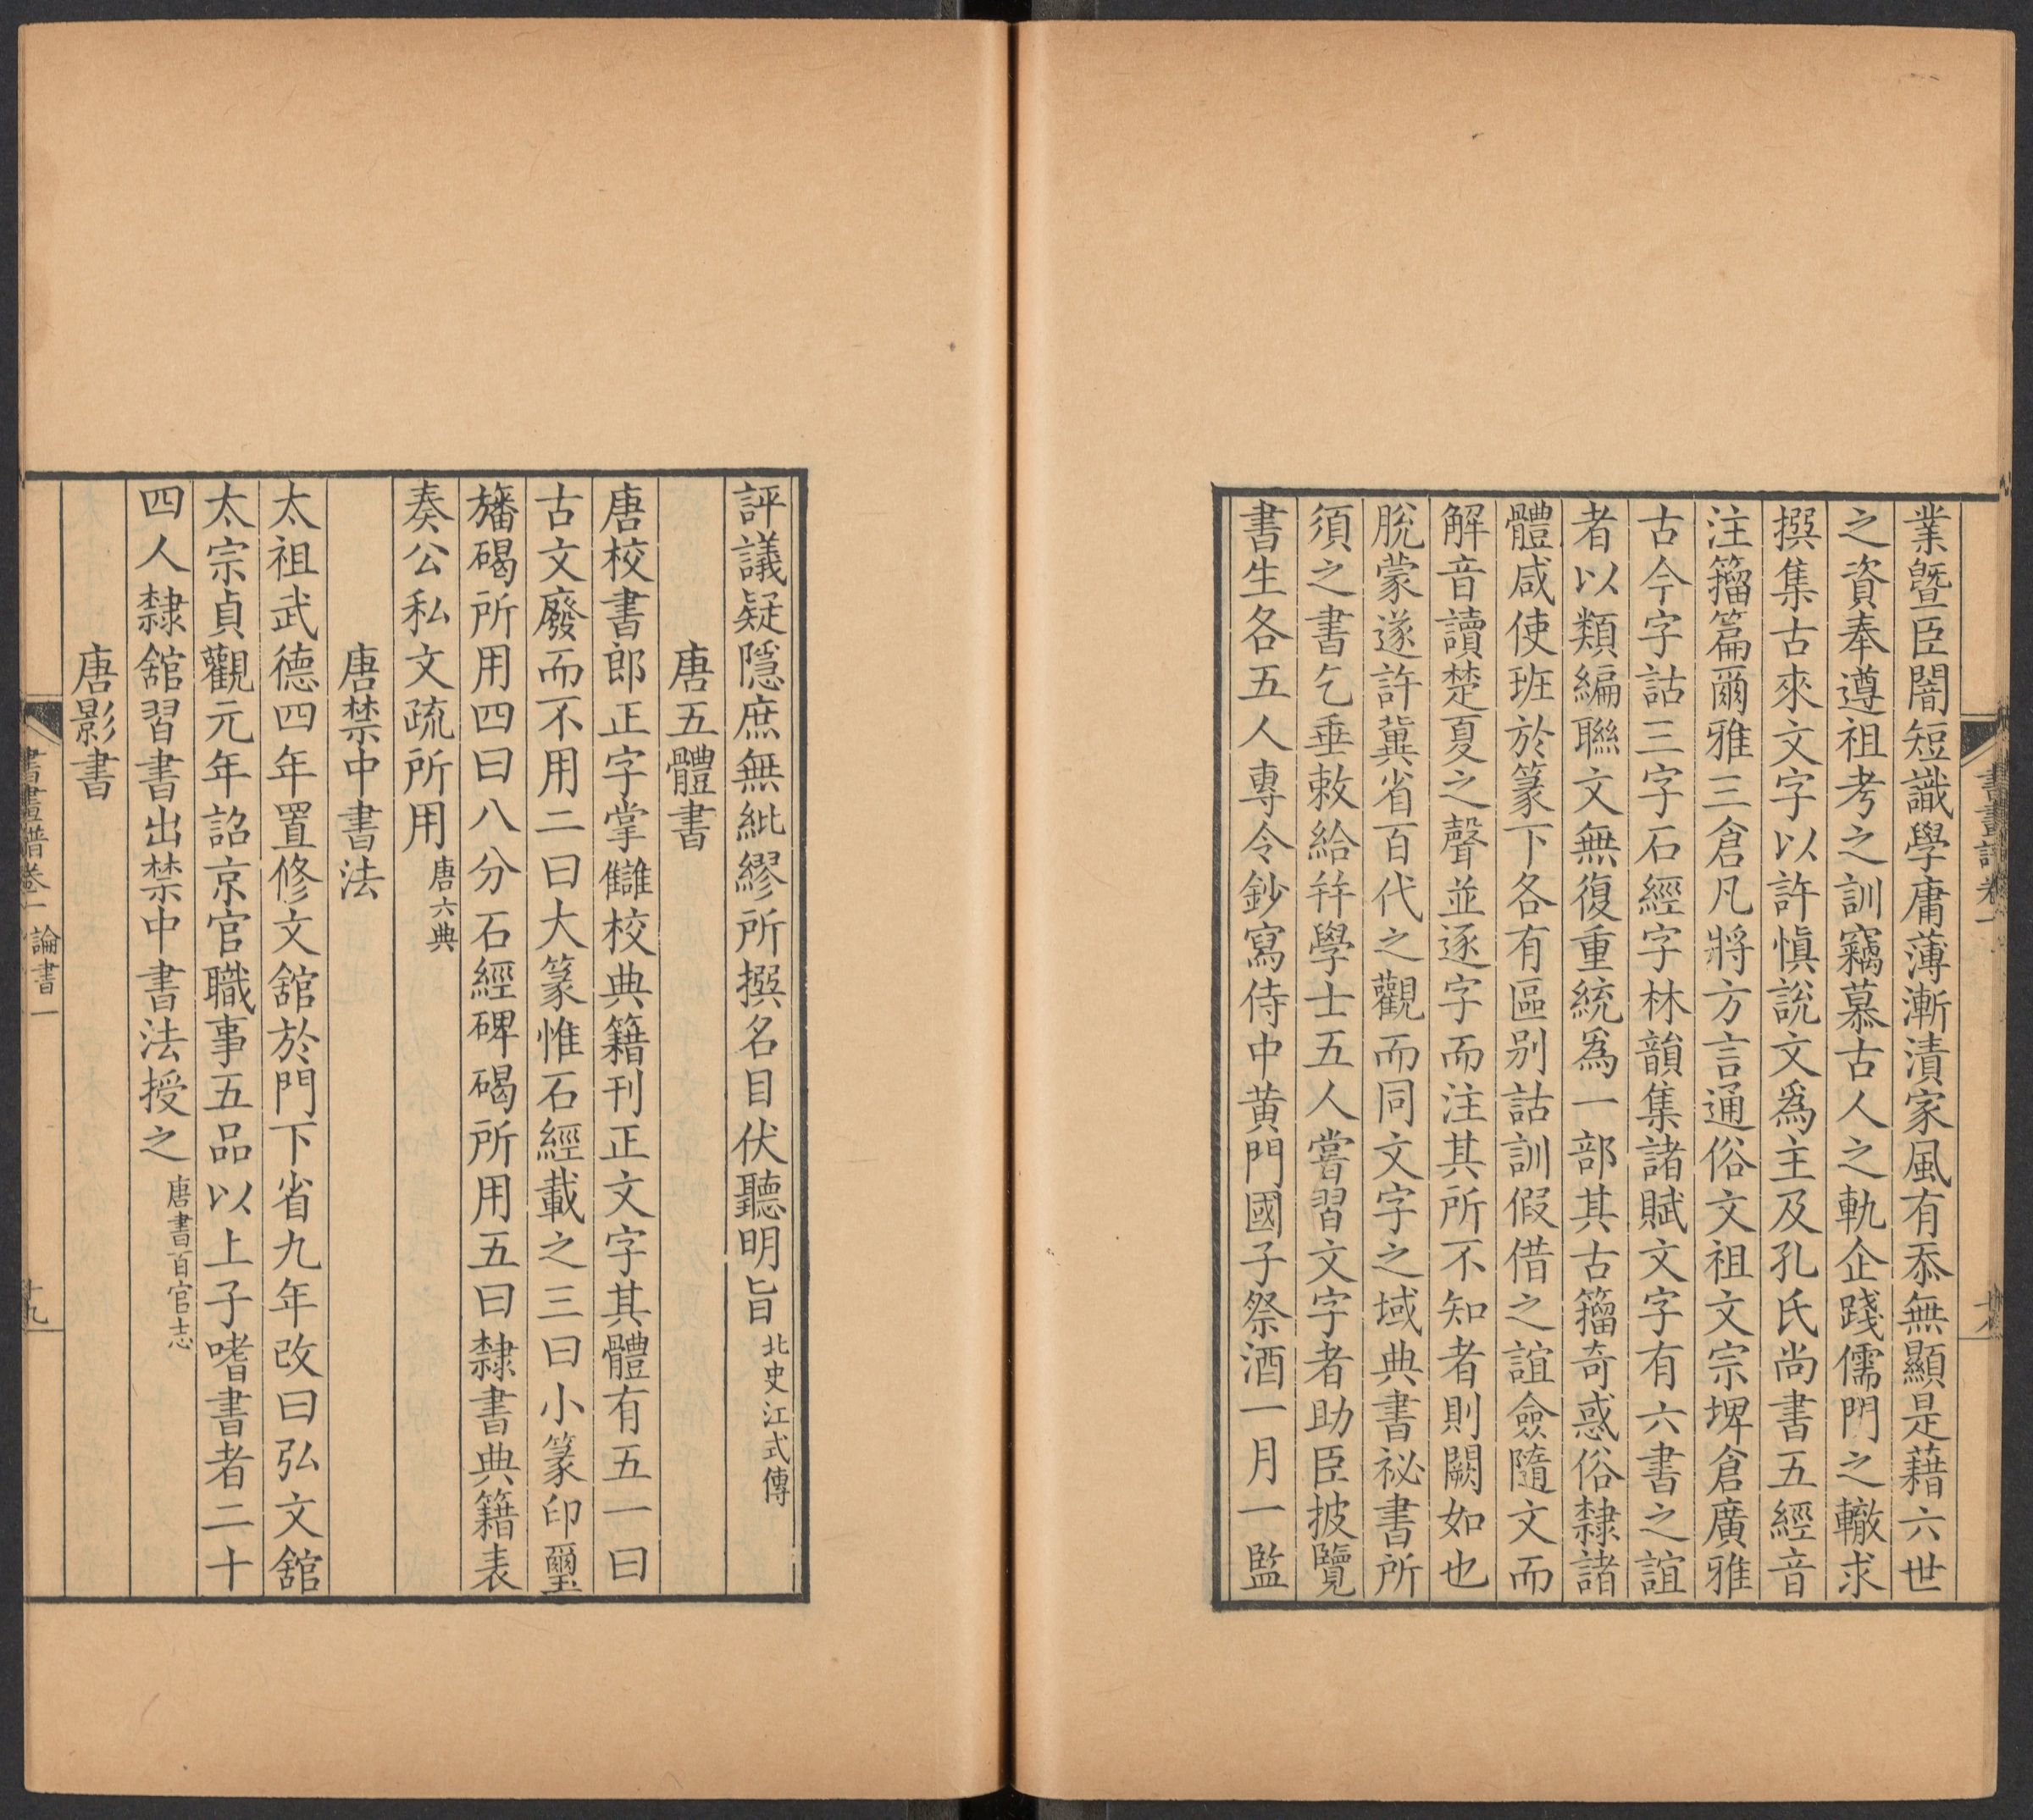 書畫譜卷一
業曁臣闇短識學庸薄漸漬家風有忝無顯是藉六世
之資奉遵祖考之訓竊慕古人之軌企踐儒門之轍求
撰集古來文字以許慎說文爲主及孔氏尚書五經音
注籀篇爾雅三倉凡將方言通俗文祖文宗埤倉廣雅
古今字詁三字石經字林韻集諸賦文字有六書之誼
者以類編聯文無復重統爲一部其古籀奇惑俗隸諸
體咸使班於篆下各有區别詁訓假借之誼僉隨文而
解音讀楚夏之聲並逐字而注其所不知者則闕如也
脫蒙遂許冀省百代之觀而同文字之域典書祕書所
須之書乞垂敕給并學士五人嘗習文字者助臣披覽
書生各五人專令鈔寫侍中黄門國子祭酒一月一監
評議疑隱庶無紕繆所撰名目伏聽明旨北史江式傳
唐五體書
唐校書郎正字掌讎校典籍刊正文字其體有五一曰
古文廢而不用二曰大篆惟石經載之三曰小篆印璽
旛碣所用四曰八分石經碑碣所用五曰隸書典籍表
奏公私文疏所用唐六典
唐禁中書法
太祖武德四年置修文舘於門下省九年改曰弘文舘
太宗貞觀元年詔京官職事五品以上子嗜書者二十
四人隸舘習書出禁中書法授之唐書百官志
唐影書
書畫譜卷一 論書一
十九